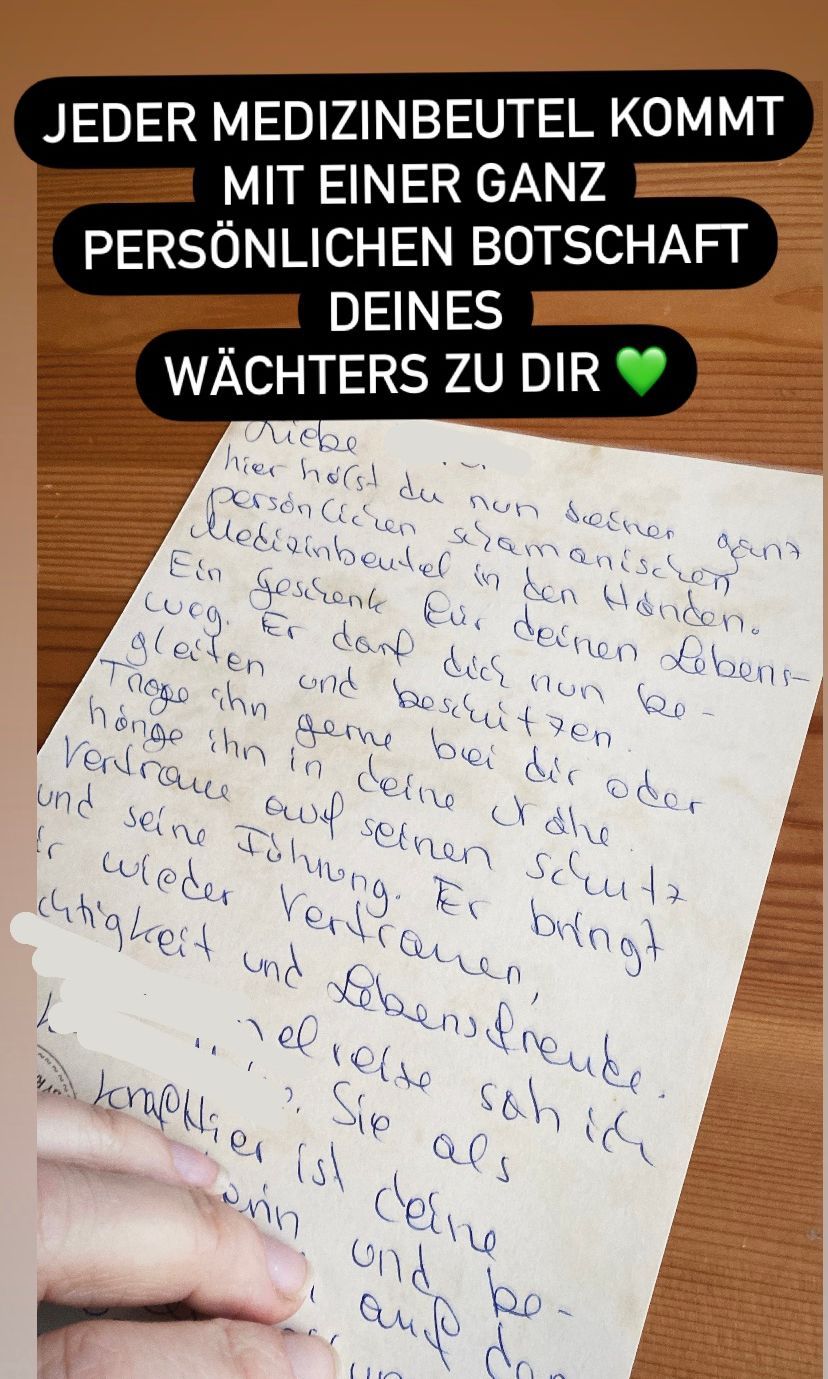 JEDER MEDIZINBEUTEL KOMMT
MIT EINER GANZ
PERSÖNLICHEN BOTSCHAFT
DEINES
WÄCHTERS ZU DIR 💚
Liebe
hier hälst du nun deinen ganz
persönlichen schamanischen
Medizinbeutel in den Händen.
Ein Geschenk für deinen Lebens-
weg. Er darf dich nun be-
gleiten und beschützen.
Trage ihn gerne bei dir oder
hänge ihn in deine Nähe.
Vertraue auf seinen Schutz
und seine Führung. Er bringt
wieder Vertrauen,
chtigkeit und Lebensfreude.
reise sah ich
Sie als
Krafttier ist deine
und be-
auf den